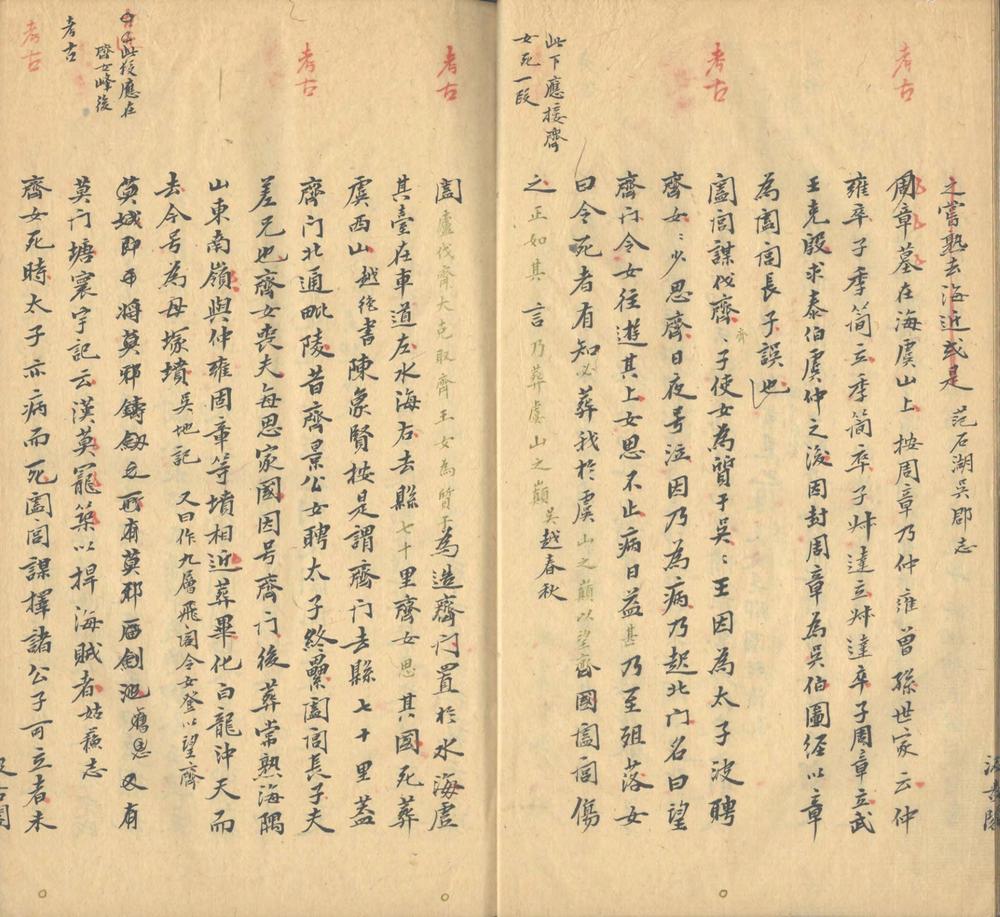 考古
考古
此下應接齊
女死一段
之嘗熟去海近或是 范石湖吳郡志
周章墓在海虞山上 按周章乃仲雍曾孫世家云仲
雍卒子季簡立季簡卒子叔達立叔達卒子周章立武
王克殷求泰伯虞仲之後因封周章為吳伯圖經以章
為闔閭長子誤也
闔閭謀伐齊齊子使女為質于吳〻王因為太子波聘
齊女〻少思齊日夜号泣因乃為病乃起北门名曰望
齊门令女往遊其上女思不止病日益甚乃至殂落女
曰令死者有知必葬我於虞山之巔以望齊國闔閭傷
之正如其言乃葬虞山之巔 吳越春秋
考古
考古
此後應在
齊女峰後
考古
考古
闔盧伐齊大克取齊王女為質子為造齊门置於水海虛
其臺在車道左水海右去縣七十里齊女思其國死葬
虞西山 越絕書 陳象賢按是謂齊门去縣七十里蓋
齊门北通毗陵昔齊景公女聘太子終纍闔閭長子夫
差兄也齊女喪夫每思家國因号齊门後葬常熟海隅
山東南嶺與仲雍周章等墳相近葬畢化白龍沖天而
去今号為母塚墳 吳地記 又曰作九層飛閣令女登以望齊
莫城即 將莫邪鑄劔之所有莫邪 劍池 又有
莫门塘寰宇記云漢莫寵築以捍海賊者 姑蘇志
齊女死時太子亦病而死闔閭謀擇諸公子可立者未